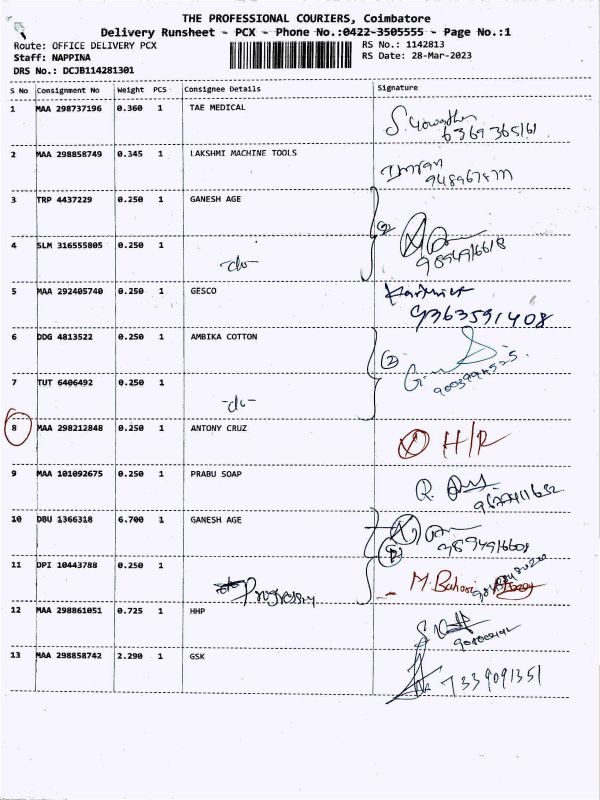 THE PROFESSIONAL COURIERS, Coimbatore
Delivery Runsheet - PCX - Phone No.:0422-3505555 - Page No.:1
Route: OFFICE DELIVERY PCX
Staff: NAPPINA
DRS No.: DCJB114281301
RS No.: 1142813
RS Date: 28-Mar-2023
S No Consignment No Weight PCS Consignee Details Signature
1 MAA 298737196 0.360 1 TAE MEDICAL
6369365161
2 MAA 298858749 0.345 1 LAKSHMI MACHINE TOOLS Imran
3 TRP 4437229 0.250 1 GANESH AGE
4 SLM 316555805 0.250 1
-do-
9894916618
5 MAA 292405740 0.250 1 GESCO
9363591408
6 DDG 4813522 0.250 1 AMBIKA COTTON
2
7 TUT 6406492 0.250 1
-do-
8 MAA 298212848 0.250 1 ANTONY CRUZ H/R
9 MAA 101092675 0.250 1 PRABU SOAP
10 DBU 1366318 6.700 1 GANESH AGE
9894916608
11 DPI 10443788 0.250 1
M. Bahari
12 MAA 298861051 0.725 1 HHP
13 MAA 298858742 2.290 1 GSK
7339091351